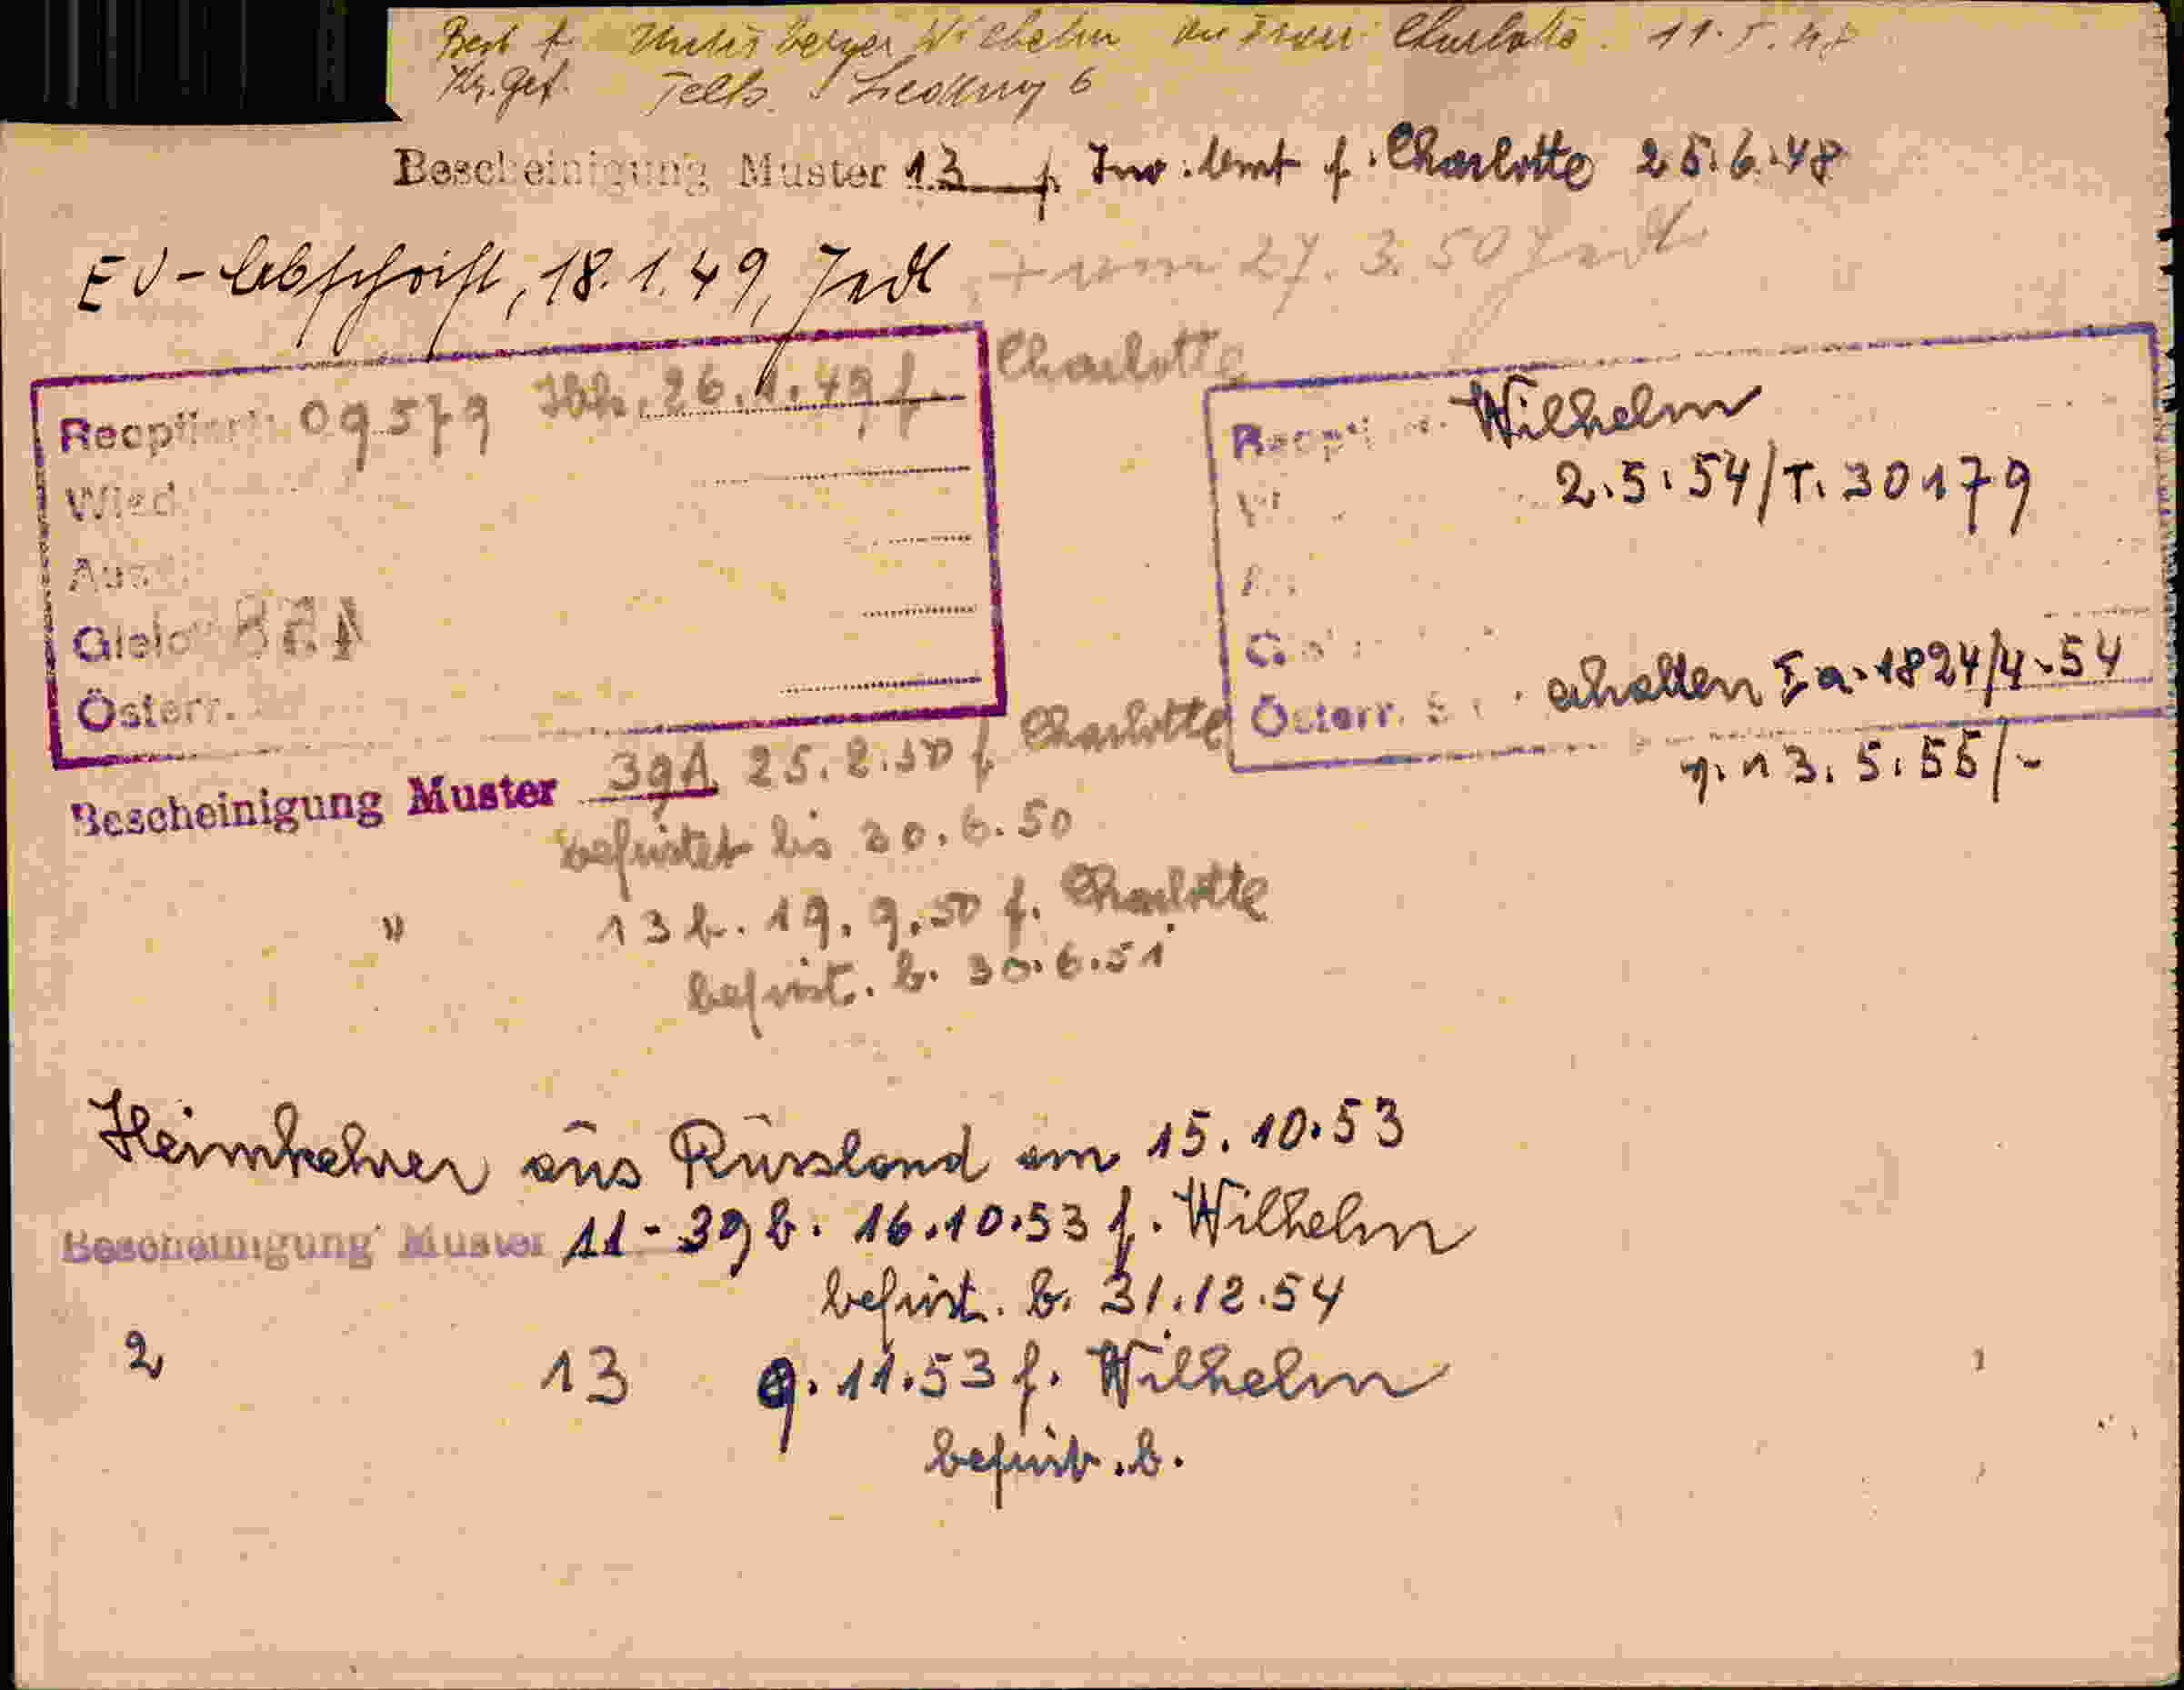 Best f. Untersberger Wilhelm an Frau Charlotte. 11.5.48
Kr. Gef. Telfs Siedlung 6
Bescheinigung Muster 13 f. Inv. Amt f. Charlotte 25.6.48
EV-Abschrift, 18.1.49, Jadl
+ vom 27.3.50 Jadl
Reoptiert: 09579 26.1.49 f. Charlotte
Wied
Ausw.
Gleich
Österr.
Reopt Wilhelm
2.5.54/T. 30179
Österr. erhalten Ia-1824/4-54
13.5.55/-
Bescheinigung Muster 39A 25.2.50 f. Charlotte
befristet bis 30.6.50
" 13 b. 19.9.50 f. Charlotte
befrist. b. 30.6.51
Heimkehrer aus Russland am 15.10.53
Bescheinigung Muster 11-39 b. 16.10.53 f. Wilhelm
befrist. b. 31.12.54
2 13 9.11.53 f. Wilhelm
befrist. b.